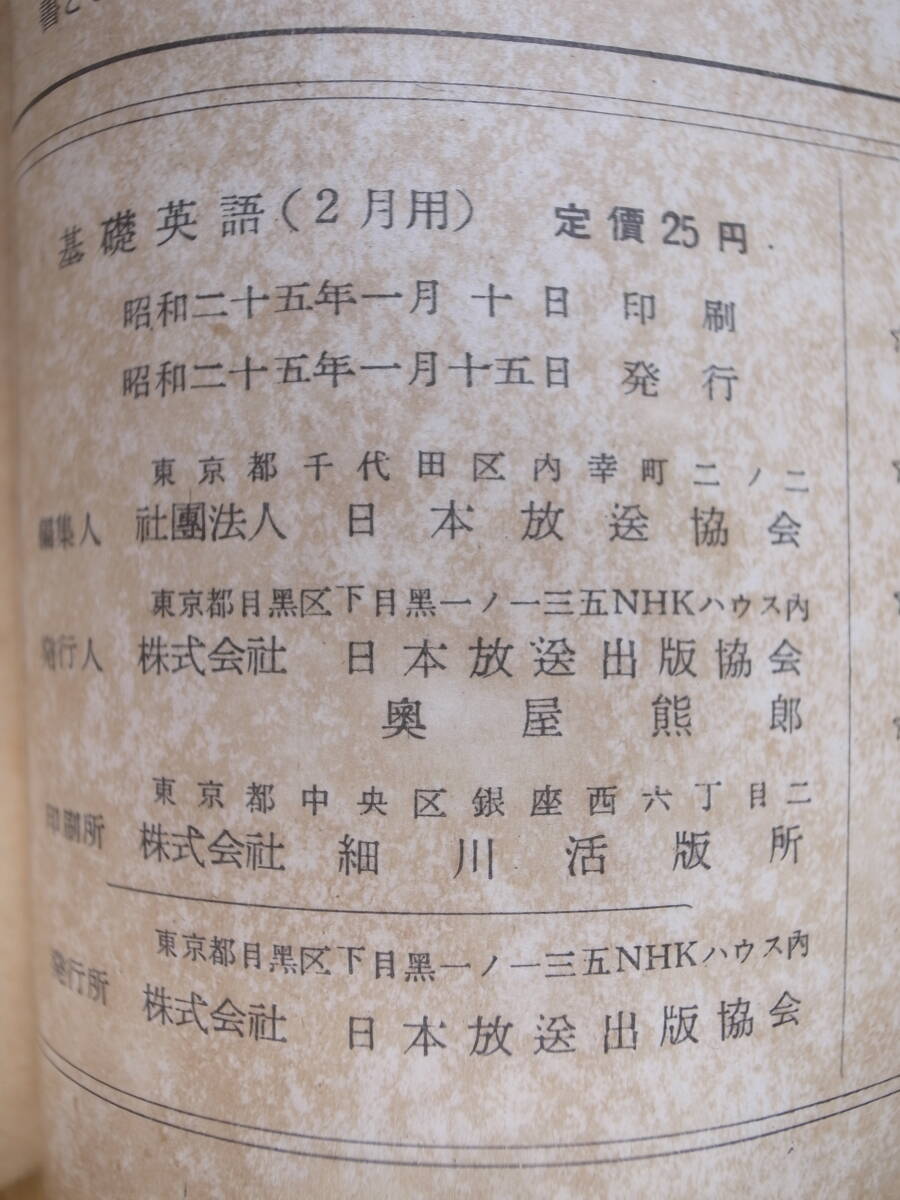 基礎英語(2月用) 定價25円
昭和二十五年一月十日 印刷
昭和二十五年一月十五日 発行
東京都千代田区内幸町二ノ二
編集人 社團法人 日本放送協会
東京都目黒区下目黒一ノ一三五NHKハウス内
発行人 株式会社 日本放送出版協会
奥屋熊郎
東京都中央区銀座西六丁目二
印刷所 株式会社 細川活版所
東京都目黒区下目黒一ノ一三五NHKハウス内
発行所 株式会社 日本放送出版協会